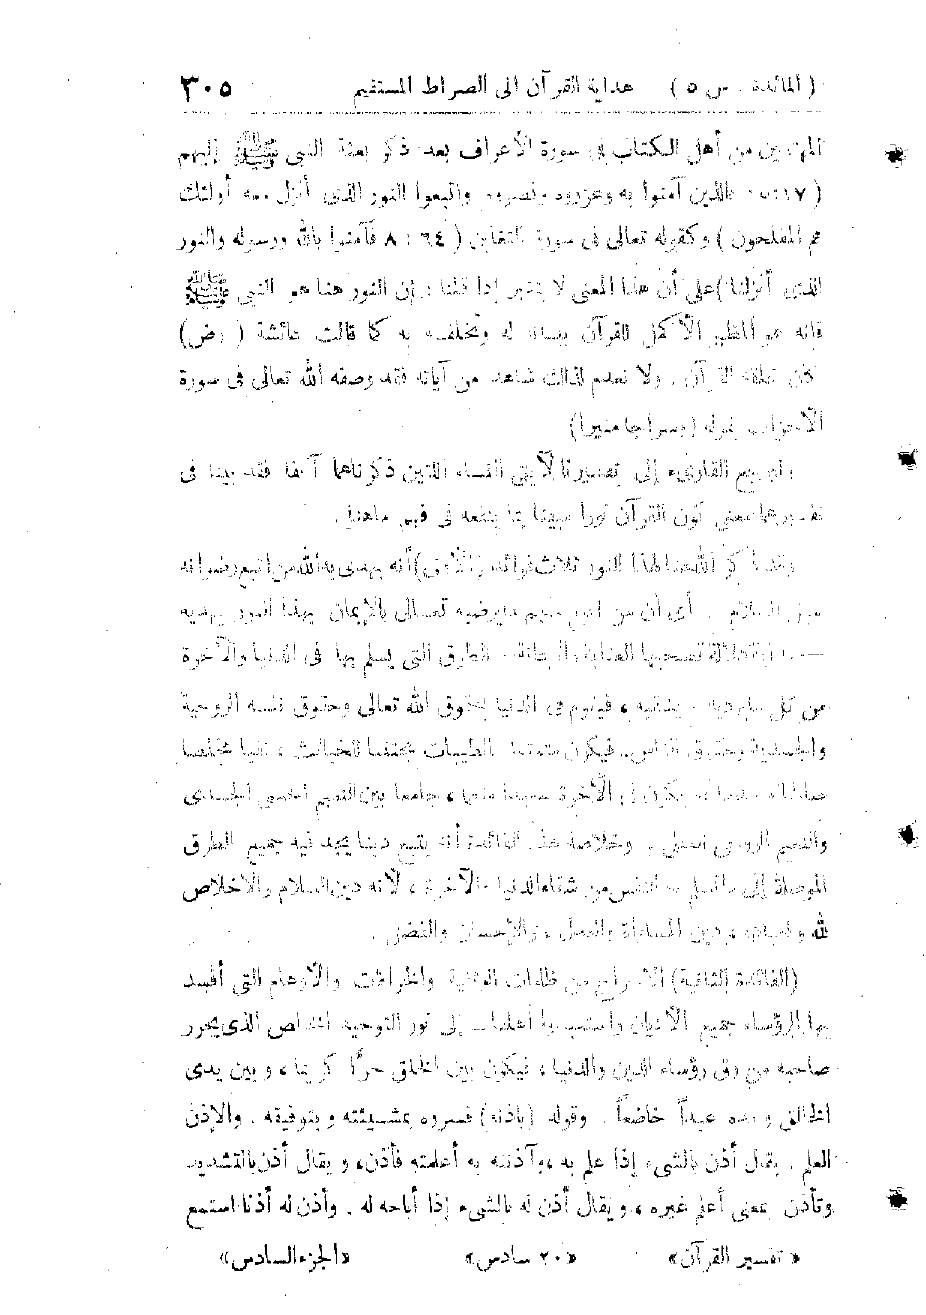 ( المائدة . س ٥ ) هداية القرآن الى الصراط المستقيم ٣٠٥
المهتدين من أهل الكتاب في سورة الأعراف بعد ذكر بعثة النبي ﷺ إليهم
( ٧ : ١٥٧ فالذين آمنوا به وعزروه ونصروه واتبعوا النور الذى أنزل معه أولئك
هم المفلحون ) وكقوله تعالى فى سورة التغابن ( ٦٤ : ٨ فآمنوا بالله ورسوله والنور
الذى أنزلنا ) على أن هذا المعنى لا يتغير إذا قلنا : إن النور هنا هو النبي ﷺ
فانه هو المظهر الأكمل للقرآن ببيانه له وتخلقه به كما قالت عائشة ( رض )
كان خلقه القرآن . ولا نعدم لذلك شاهد من آياته فقد وصفه الله تعالى فى سورة
الأحزاب بقوله ( وسراجا منيرا )
وليرجع القارىء إلى تفسيرنا لآيتي النساء اللتين ذكرناهما آنفا فقد بينا فى
تفسيرهما معنى كون القرآن نورا مبينا بما ينفعه فى فهم ماهنا .
وقد ذكر الله هنا لهذا النور ثلاث فوائد ( الأولى ) أنه يهدى به الله من اتبع رضوانه
سبل السلام . أى أن من اتبع منهم مايرضيه تعالى بالإيمان بهذا النور يهديه
الطرق التى يسلم بها فى الدنيا والآخرة
من كل مايرديه ويشقيه ، فيقوم فى الدنيا بحقوق الله تعالى وحقوق نفسه الروحية
والجسدية وحقوق الناس . فيكون متمتعا بالطيبات مجتنبا للخبائث ، تقيا مخلصا
يكون فى الآخرة سعيدا منعما ، جامعا بين النعيم الحسي الجسدى
والنعيم الروحي العقلي . وخلاصة هذه الفائدة أنه يتبع دينا يجد فيه جميع الطرق
الموصلة إلى ماتسلم به النفس من شقاء الدنيا والآخرة ، لأنه دين السلام والاخلاص
لله ولعباده ، دين المساواة والعدل ، والإحسان والفضل .
( الفائدة الثانية ) الاخراج من ظلمات الوثنية والخرافات والأوهام التى أفسد
بها الرؤساء جميع الأديان واستعبدوا أهلها إلى نور التوحيد الخالص الذى يحرر
صاحبه من رق رؤساء الدين والدنيا ، فيكون بين الخلق حرًّا كريما ، وبين يدى
الخالق وحده عبداً خاضعاً . وقوله ( بإذنه ) فسروه بمشيئته وبتوفيقه . والإذن
العلم . يقال أذن بالشيء إذا علم به ، وآذنته به أعلمته فأذن ، ويقال أذن بالتشديد
وتأذن بمعنى أعلم غيره ، ويقال أذن له بالشيء إذا أباحه له . وأذن له أذنا استمع
« تفسير القرآن » « ٢٠ سادس » « الجزء السادس »